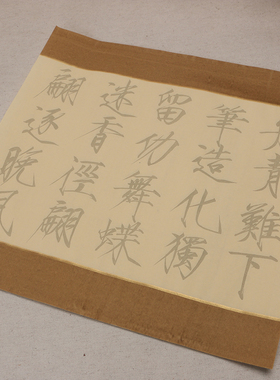 青難下
筆造化獨
留功舞蝶
迷香徑翩
翩逐晚風